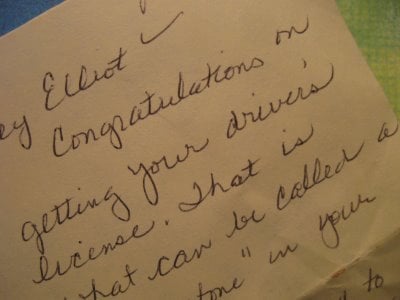 ey Elliot ~
Congratulations on
getting your driver's
license. That is
hat can be called a
tone" in your
d to